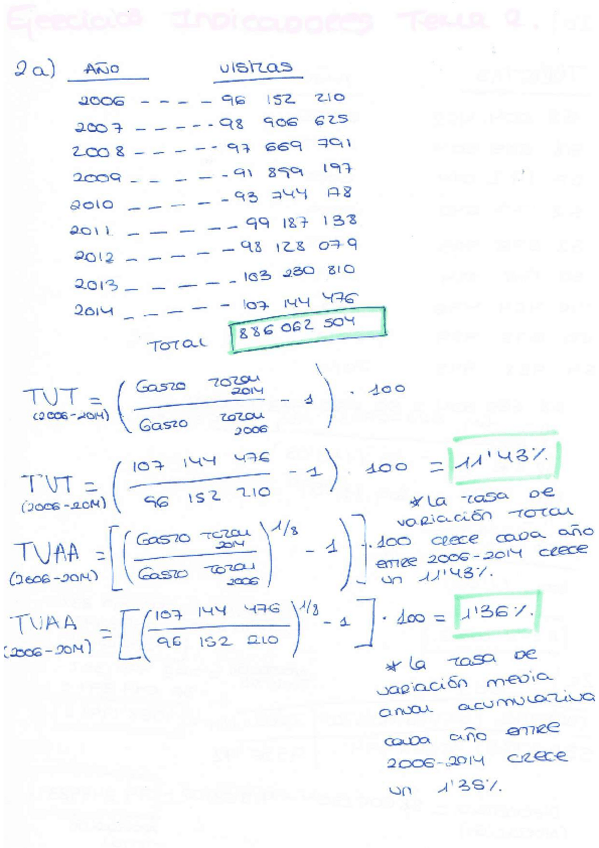 Ejercicios Indicadores Tema 2.
2a) AÑO visitas
2006 ---- 96 152 210
2007 ----- 98 906 625
2008 ----- 97 669 791
2009 ----- 91 899 197
2010 ----- 93 744 178
2011 ----- 99 187 138
2012 ----- 98 128 079
2013 ----- 103 230 810
2014 ----- 107 144 476
TOTAL 886 062 504
TVT (2006-2014) = (Gasto total 2014 / Gasto total 2006 - 1) · 100
TVT (2006-2014) = (107 144 476 / 96 152 210 - 1) · 100 = 11'43%
* La tasa de
variación total
crece cada año
entre 2006-2014 crece
un 11'43%.
TVAA (2006-2014) = [(Gasto total 2014 / Gasto total 2006)^1/8 - 1)] · 100
TVAA (2006-2014) = [(107 144 476 / 96 152 210)^1/8 - 1] · 100 = 1'36%
* La tasa de
variación media
anual acumulativa
cada año entre
2006-2014 crece
un 1'36%.